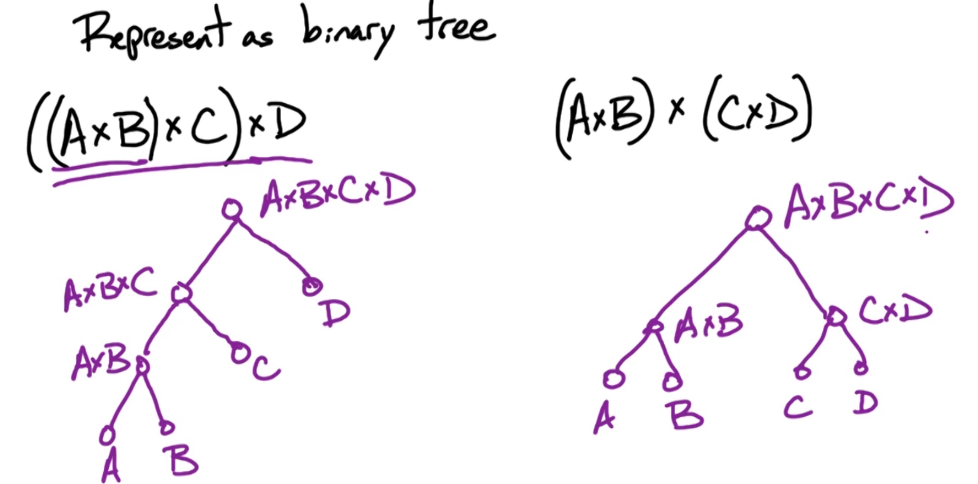 Represent as binary tree
((A×B)×C)×D
A×B×C×D
A×B×C
D
A×B
C
A
B
(A×B) × (C×D)
A×B×C×D
A×B
C×D
A
B
C
D